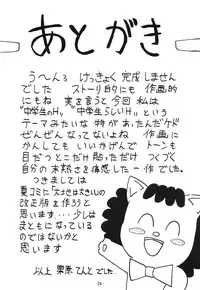 あとがき
うへ〜んぅ けっきょく完成しません
でした ストーリ的にも 作画的
にもね 実を言うと 今回 私は
"中学生のH。" "中学生らしいH" という
テーマみたいな物が あったんだケド
ぜんぜん なってないよね 作画に
かんしても いいかげんで トーンも
目だつとこだけ貼っただけ つくづく
自分の 未熟さを痛感した一作でした。
つきましては
夏コミに「大地は大きい」の
改正版も作ろうと
思います・・・ 少しは
まともに なっている
のではないかと
思います
以上 栗原 ひんと でした。